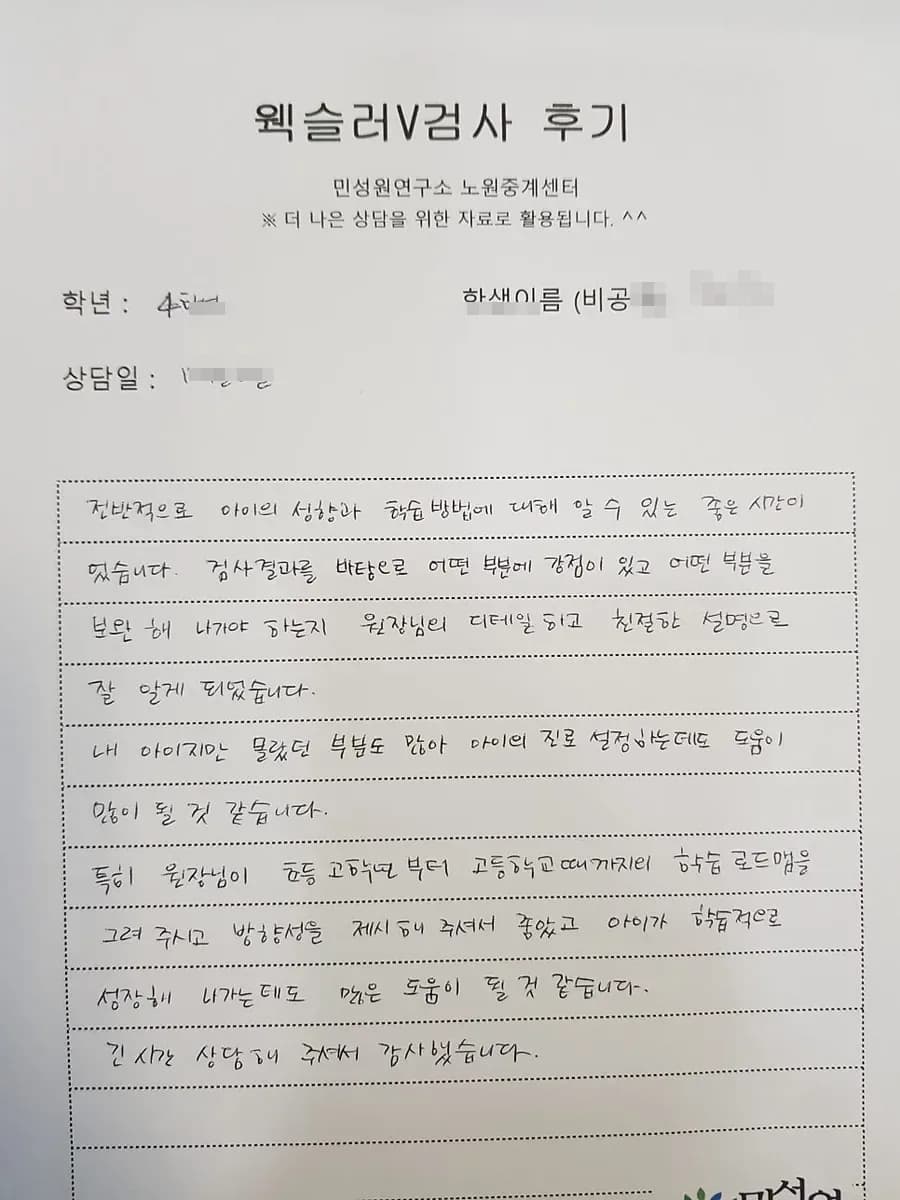 웩슬러V검사 후기
민성원연구소 노원중계센터
※ 더 나은 상담을 위한 자료로 활용됩니다. ^^
학년 : 4
학생이름 (비공
상담일 :
전반적으로 아이의 성향과 학습방법에 대해 알 수 있는 좋은 시간이
었습니다. 검사결과를 바탕으로 어떤 부분에 강점이 있고 어떤 부분을
보완 해 나가야 하는지 원장님의 디테일하고 친절한 설명으로
잘 알게 되었습니다.
내 아이지만 몰랐던 부분도 많아 아이의 진로 설정하는데도 도움이
많이 될 것 같습니다.
특히 원장님이 초등 고학년 부터 고등학교때까지의 학습 로드맵을
그려 주시고 방향성을 제시해 주셔서 좋았고 아이가 학습적으로
성장해 나가는데도 많은 도움이 될 것 같습니다.
긴 시간 상담해 주셔서 감사했습니다.